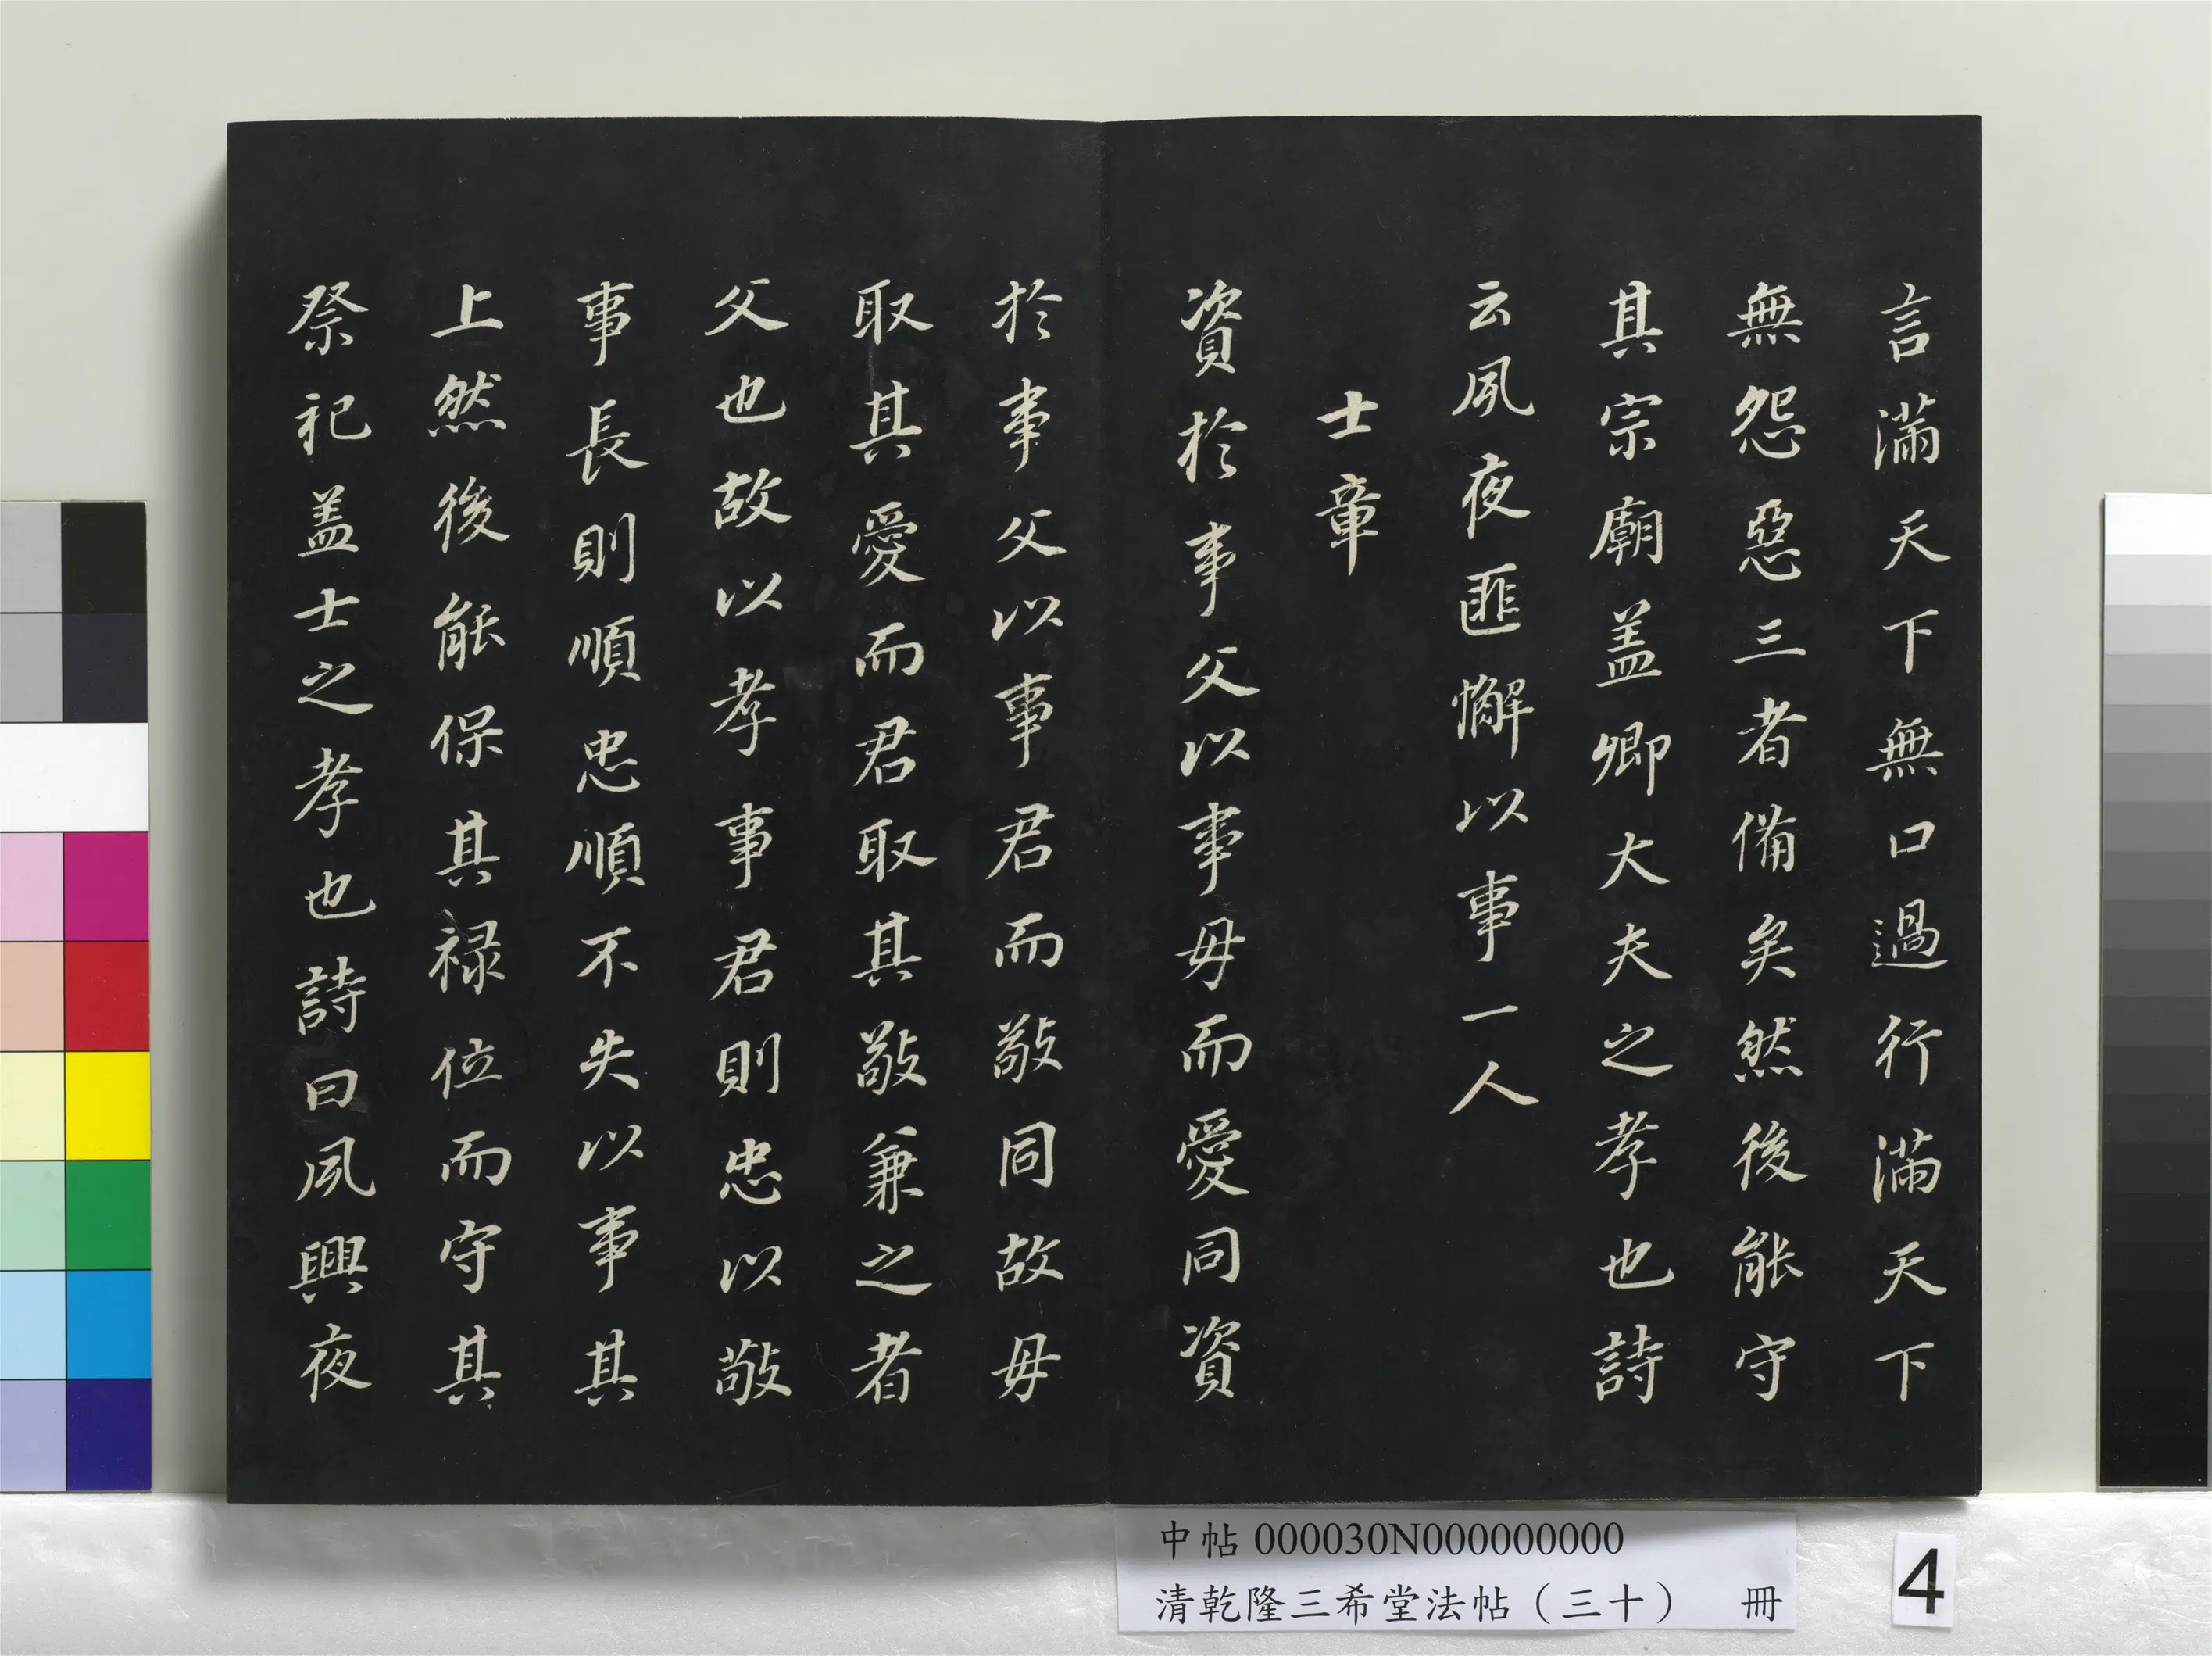 言滿天下無口過行滿天下
無怨惡三者備矣然後能守
其宗廟盖卿大夫之孝也詩
云夙夜匪懈以事一人
士章
資於事父以事母而愛同資
於事父以事君而敬同故母
取其愛而君取其敬兼之者
父也故以孝事君則忠以敬
事長則順忠順不失以事其
上然後能保其禄位而守其
祭祀盖士之孝也詩曰夙興夜
中帖 000030N000000000
清乾隆三希堂法帖（三十） 冊
4